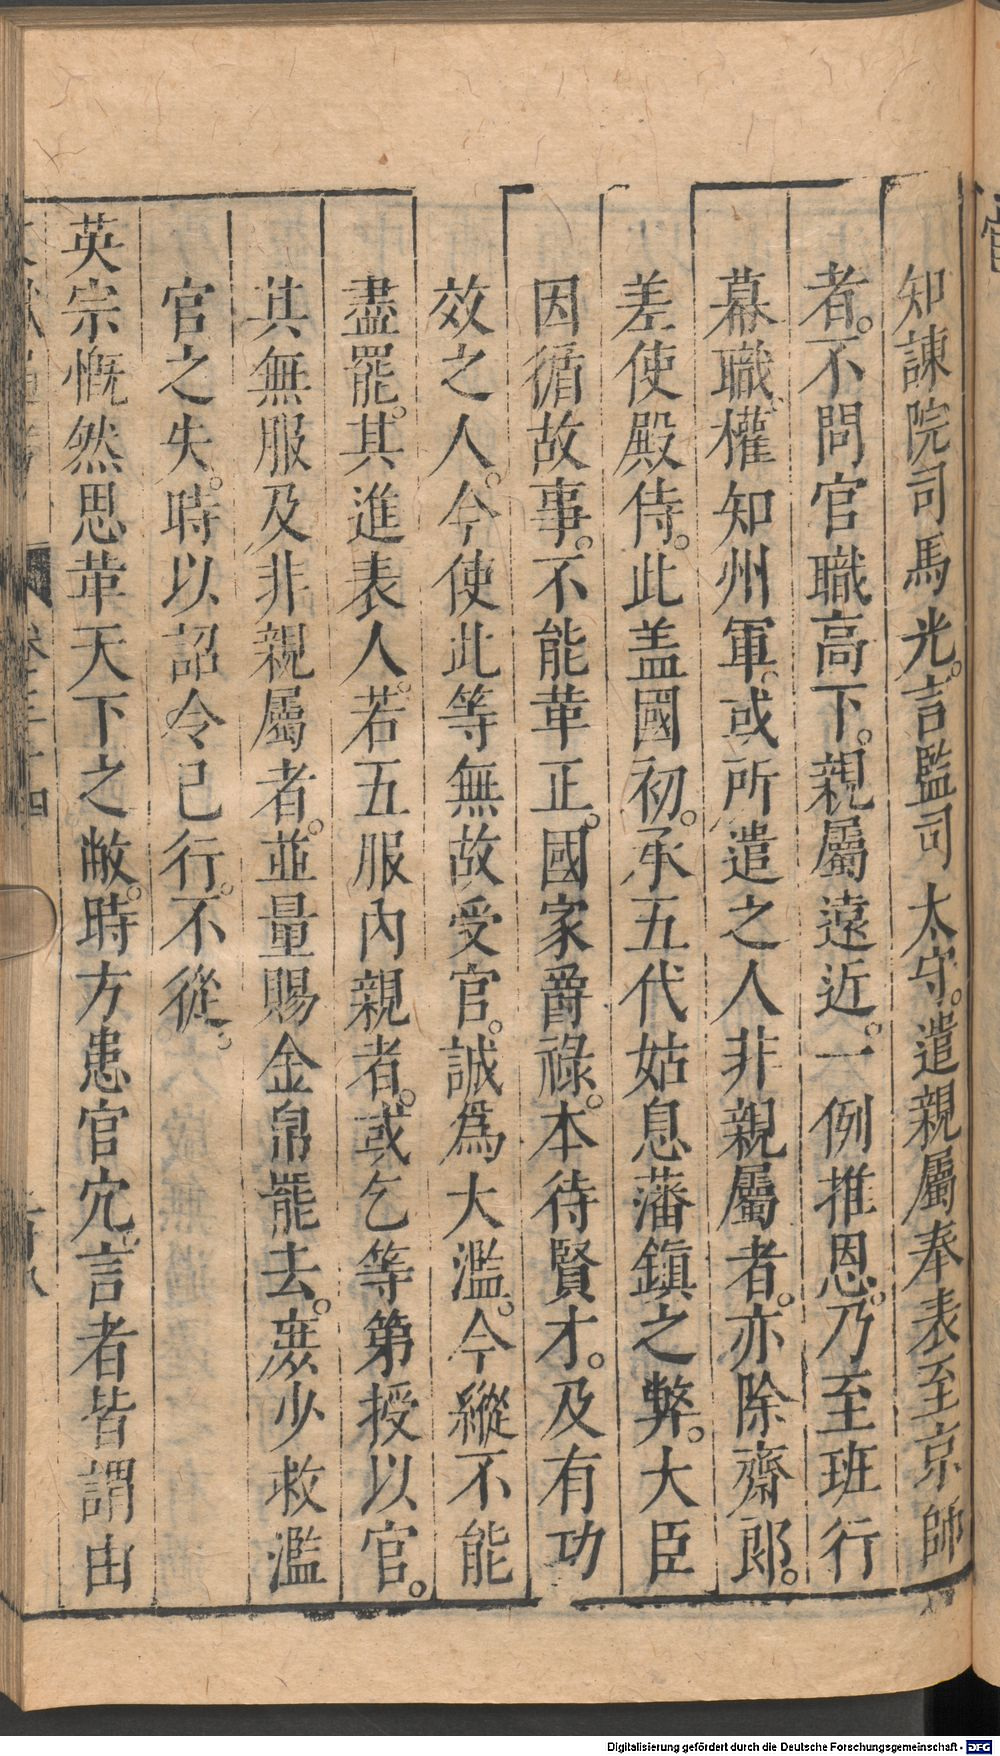 知諫院司馬光。言監司太守。遣親屬奉表至京師
者。不問官職高下。親屬遠近。一例推恩。乃至班行
幕職、權知州軍。或所遣之人非親屬者。亦除齋郎。
差使殿侍。此盖國初。承五代姑息藩鎮之弊。大臣
因循故事。不能革正。國家爵祿。本待賢才。及有功
效之人。今使此等無故受官。誠爲大濫。今縱不能
盡罷。其進表人。若五服內親者。或乞等第授以官。
其無服及非親屬者。並量賜金帛罷去。庻少救濫
官之失。時以詔令已行。不從。
英宗慨然思革天下之敝。時方患官宂。言者皆謂由
Digitalisierung gefördert durch die Deutsche Forschungsgemeinschaft - DFG